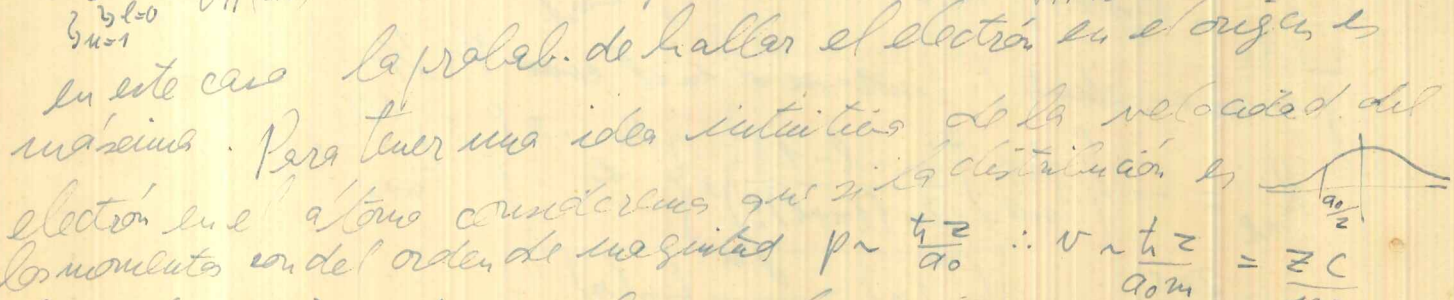 l=0
n=1
en este caso la probab. de hallar el electrón en el origen es
máxima. Para tener una idea intuitiva de la velocidad del
electrón en el átomo consideremos que si la distribución es
a₀/z
los momentos son del orden de magnitud p ~ ħz/a₀ ∴ v ~ ħz/a₀m = zc